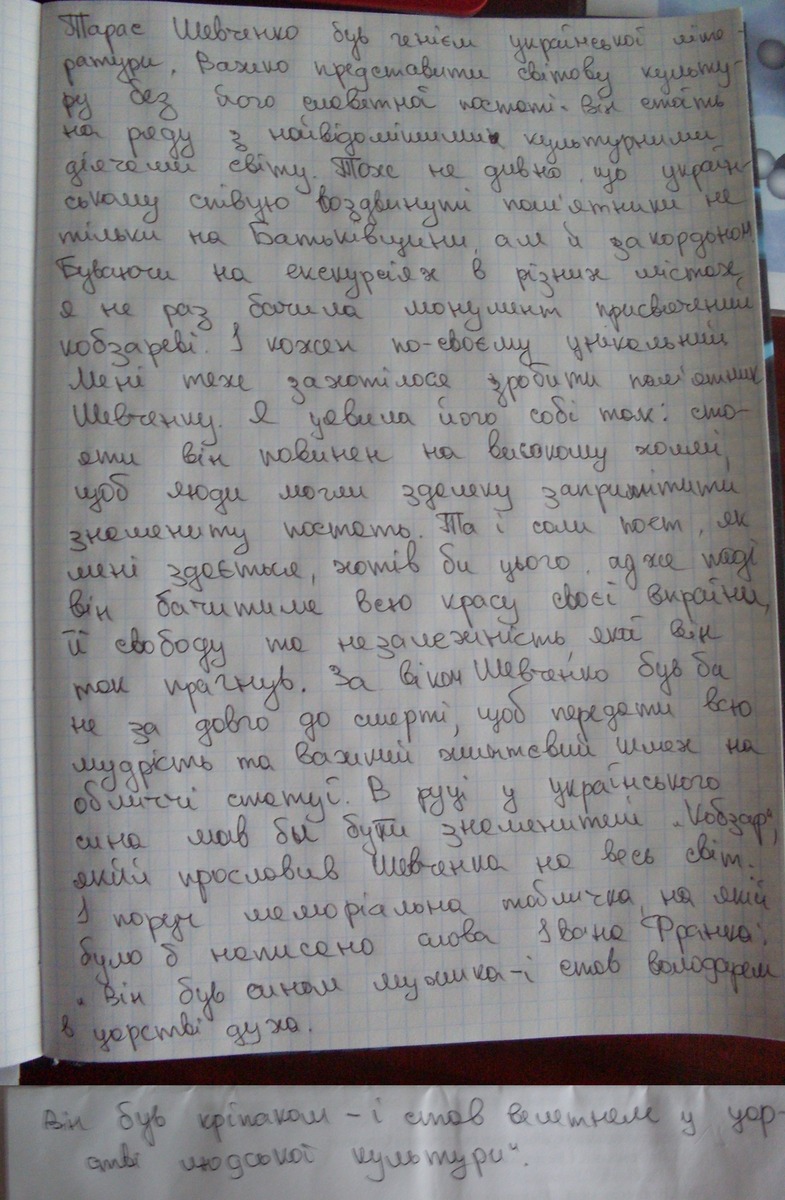 Тарас Шевченко був генієм української літе-
ратури. Важко представити світову культу-
ру без його славетної постаті. Він стоїть
на ряду з найвідомішими культурними
діячами світу. Тож не дивно, що україн-
ському співцю воздвинуті пам'ятники не
тільки на Батьківщини, ал й за кордоном.
Буваючи на екскурсіях в різних містах,
я не раз бачила монумент присвячений
кобзареві. І кожен по-своєму унікальний
Мені теж захотілося зробити пам'ятник
Шевченку. Я уявила його собі так: сто-
яти він повинен на високому холмі,
щоб люди могли здалеку запримітити
знамениту постать. Та і сам поет, як
мені здається, хотів би цього, адже тоді
він бачитиме всю красу своєї вкраїни,
її свободу та незалежність, якої він
так прагнув. За віком Шевченко був би
не за довго до смерті, щоб передати всю
мудрість та важкий життєвий шлях на
обличчі статуї. В руці у українського
сина мав би бути знаменитий „Кобзар",
який прославив Шевченка на весь світ.
І поруч меморіальна табличка, на якій
було б написано слова Івана Франка:
„Він був сином мужика-і став володарем
в царстві духа.
Він був кріпаком – і став велетнем у цар-
стві людської культури".